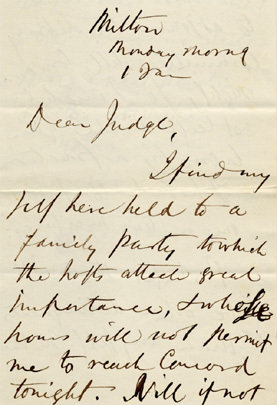 Milton
Monday morng
1 Jan
Dear Judge,
I find my
self here held to a
family party to which
the hosts attach great
importance, & whose
hours will not permit
me to reach Concord
tonight. Will if not